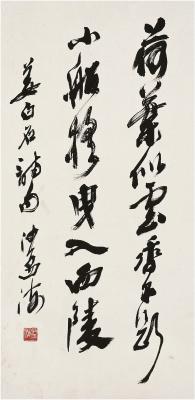 荷叶似云香不断
小船摇曳入西陵
姜白石诗句 沙孟海